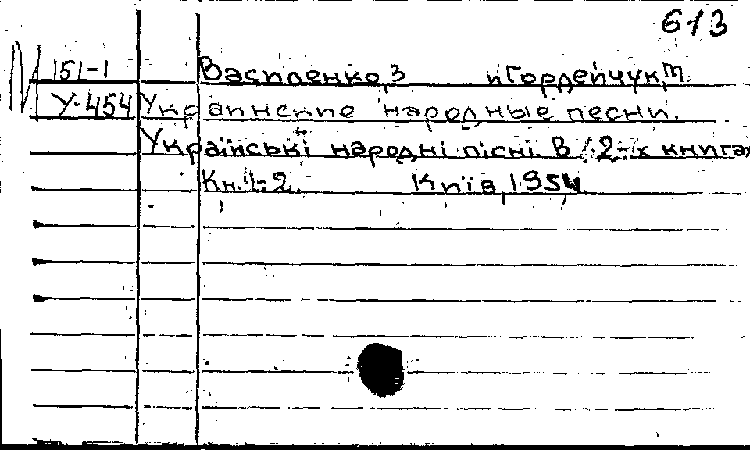 613
151-1 Василенко, З и Гордейчук, М.
У-454 Украинские народные песни.
Українські народні пісні. В 2-х книгах
Кн. 1-2. Київ, 1954